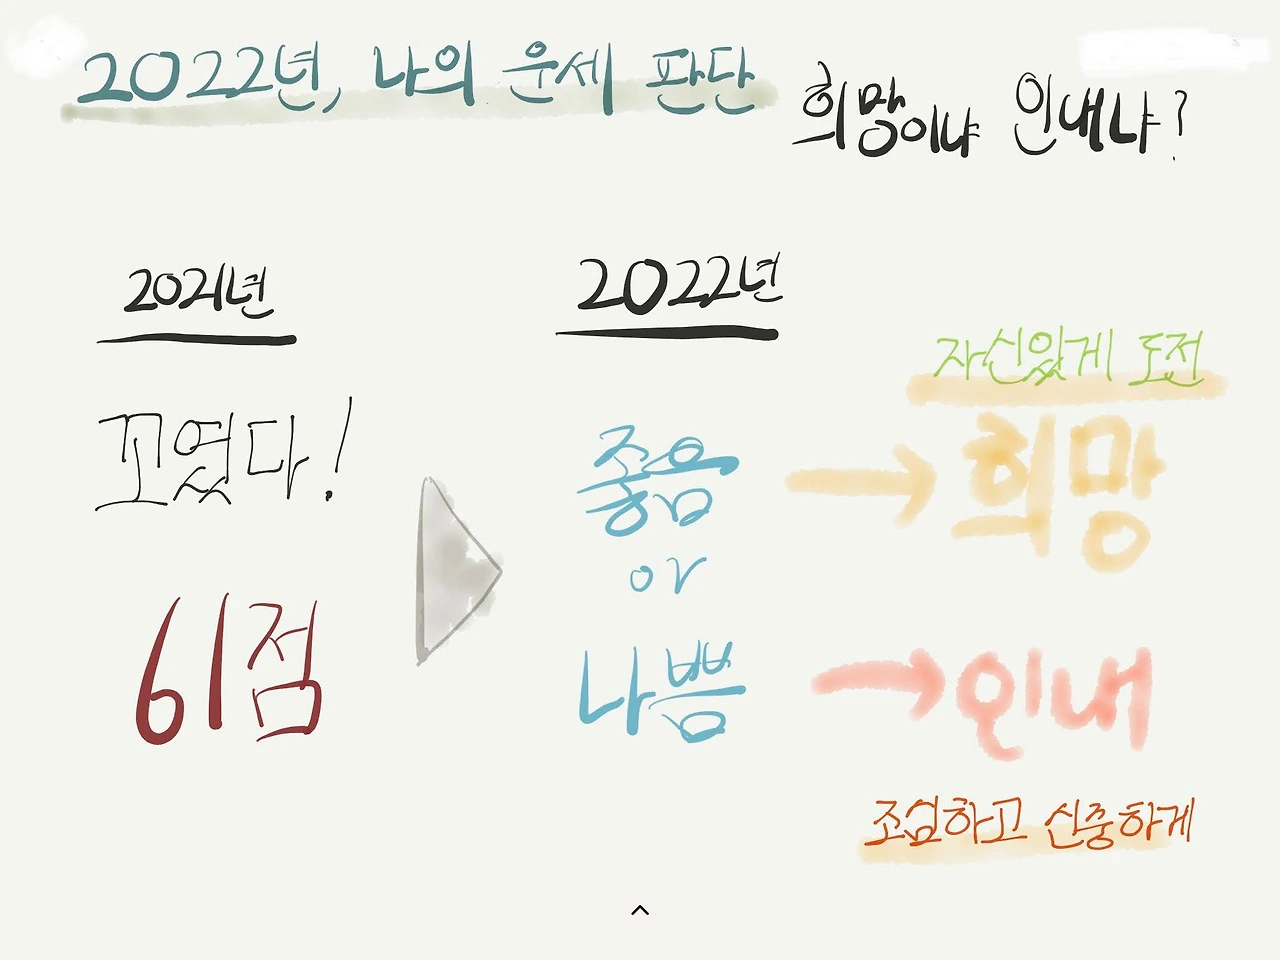 2022년, 나의 운세 판단
희망이냐 인내냐?
2021년
꼬였다!
61점
2022년
좋음
or
나쁨
자신있게 도전
희망
인내
조심하고 신중하게